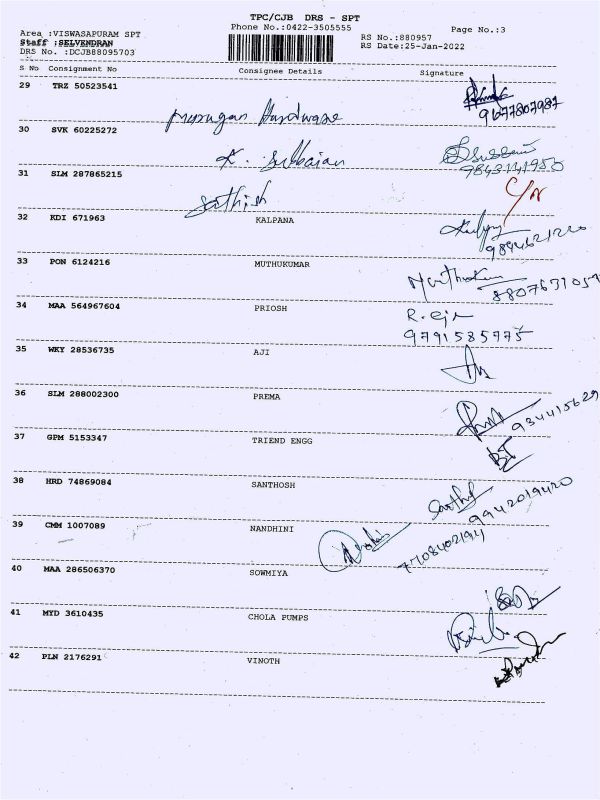 TPC/CJB DRS - SPT
Phone No.:0422-3505555
Page No.:3
Area :VISWASAPURAM SPT
Staff :SELVENDRAN
DRS No. :DCJB88095703
RS No.:880957
RS Date:25-Jan-2022
S No Consignment No Consignee Details Signature
29 TRZ 50523541
Murugan Hardware
9677807987
30 SVK 60225272
K. Subbaian
9843141980
31 SLM 287865215
Sathish
C/N
32 KDI 671963 KALPANA
33 PON 6124216 MUTHUKUMAR
34 MAA 564967604 PRIOSH
9791585775
35 WKY 28536735 AJI
36 SLM 288002300 PREMA
934415629
37 GPM 5153347 TRIEND ENGG
38 HRD 74869084 SANTHOSH
9942019420
39 CMM 1007089 NANDHINI
7708402194
40 MAA 286506370 SOWMIYA
41 MYD 3610435 CHOLA PUMPS
42 PLN 2176291 VINOTH